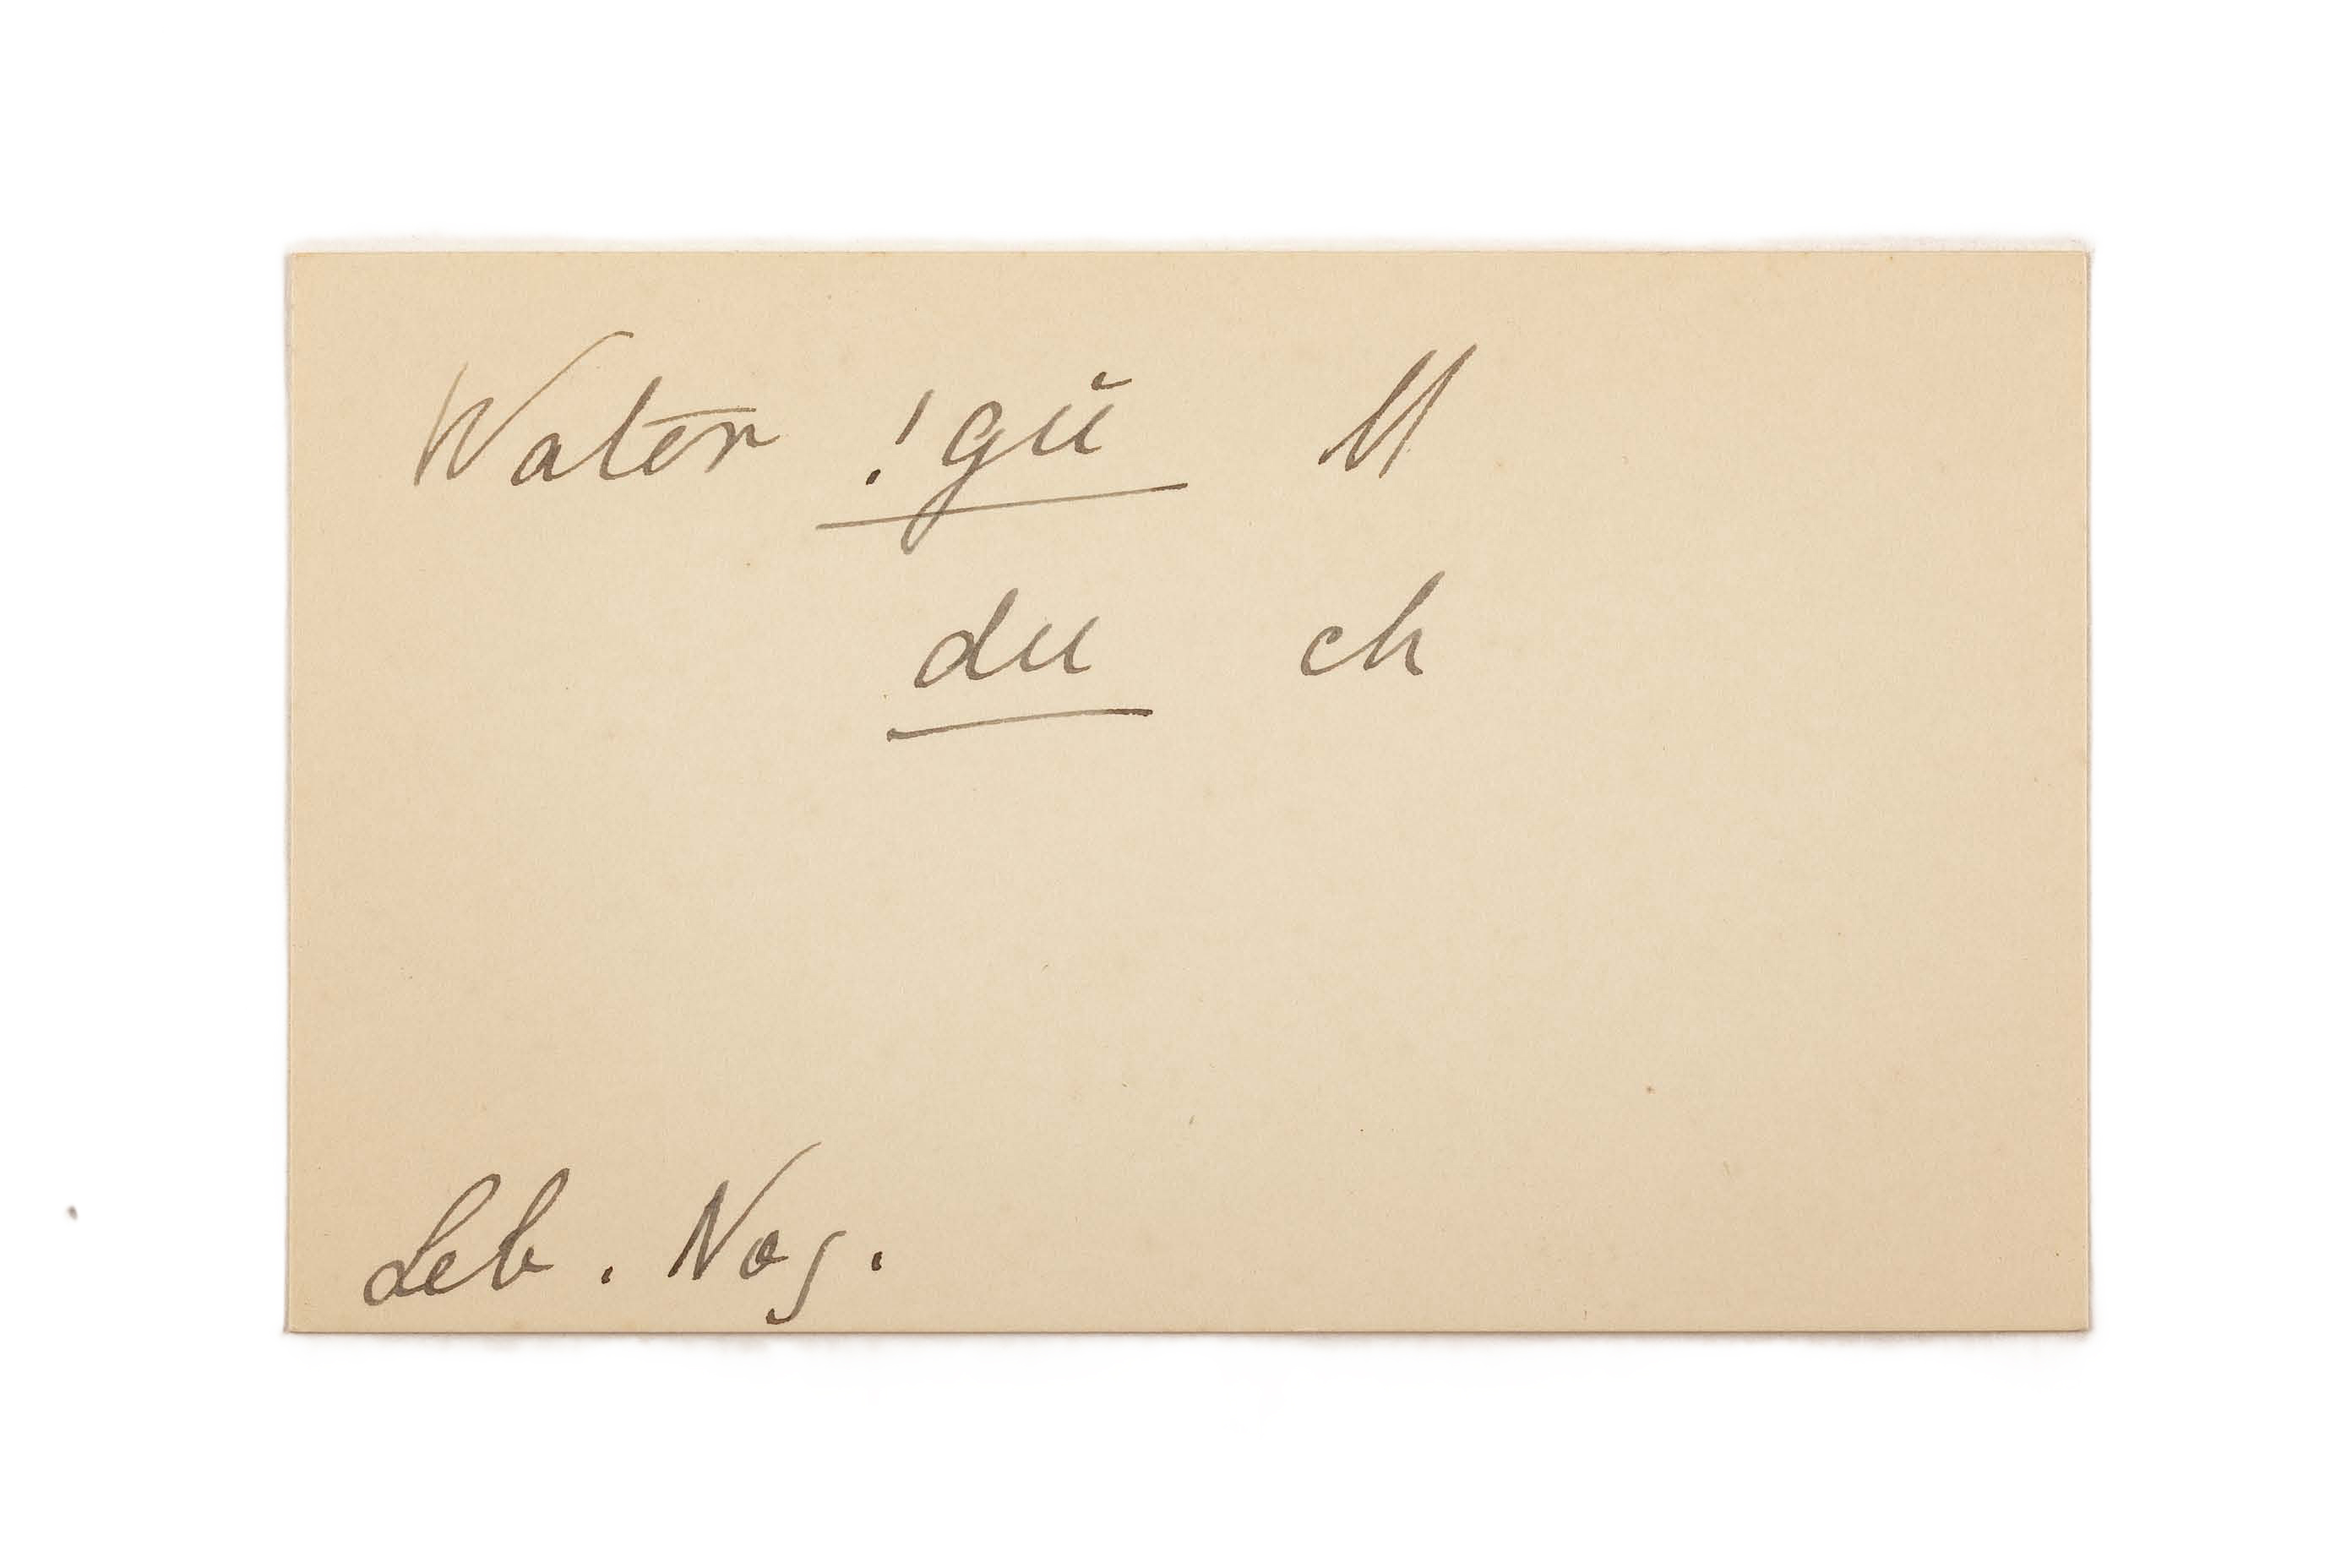 Water !gŭ M
du ch
Leb. Nog.